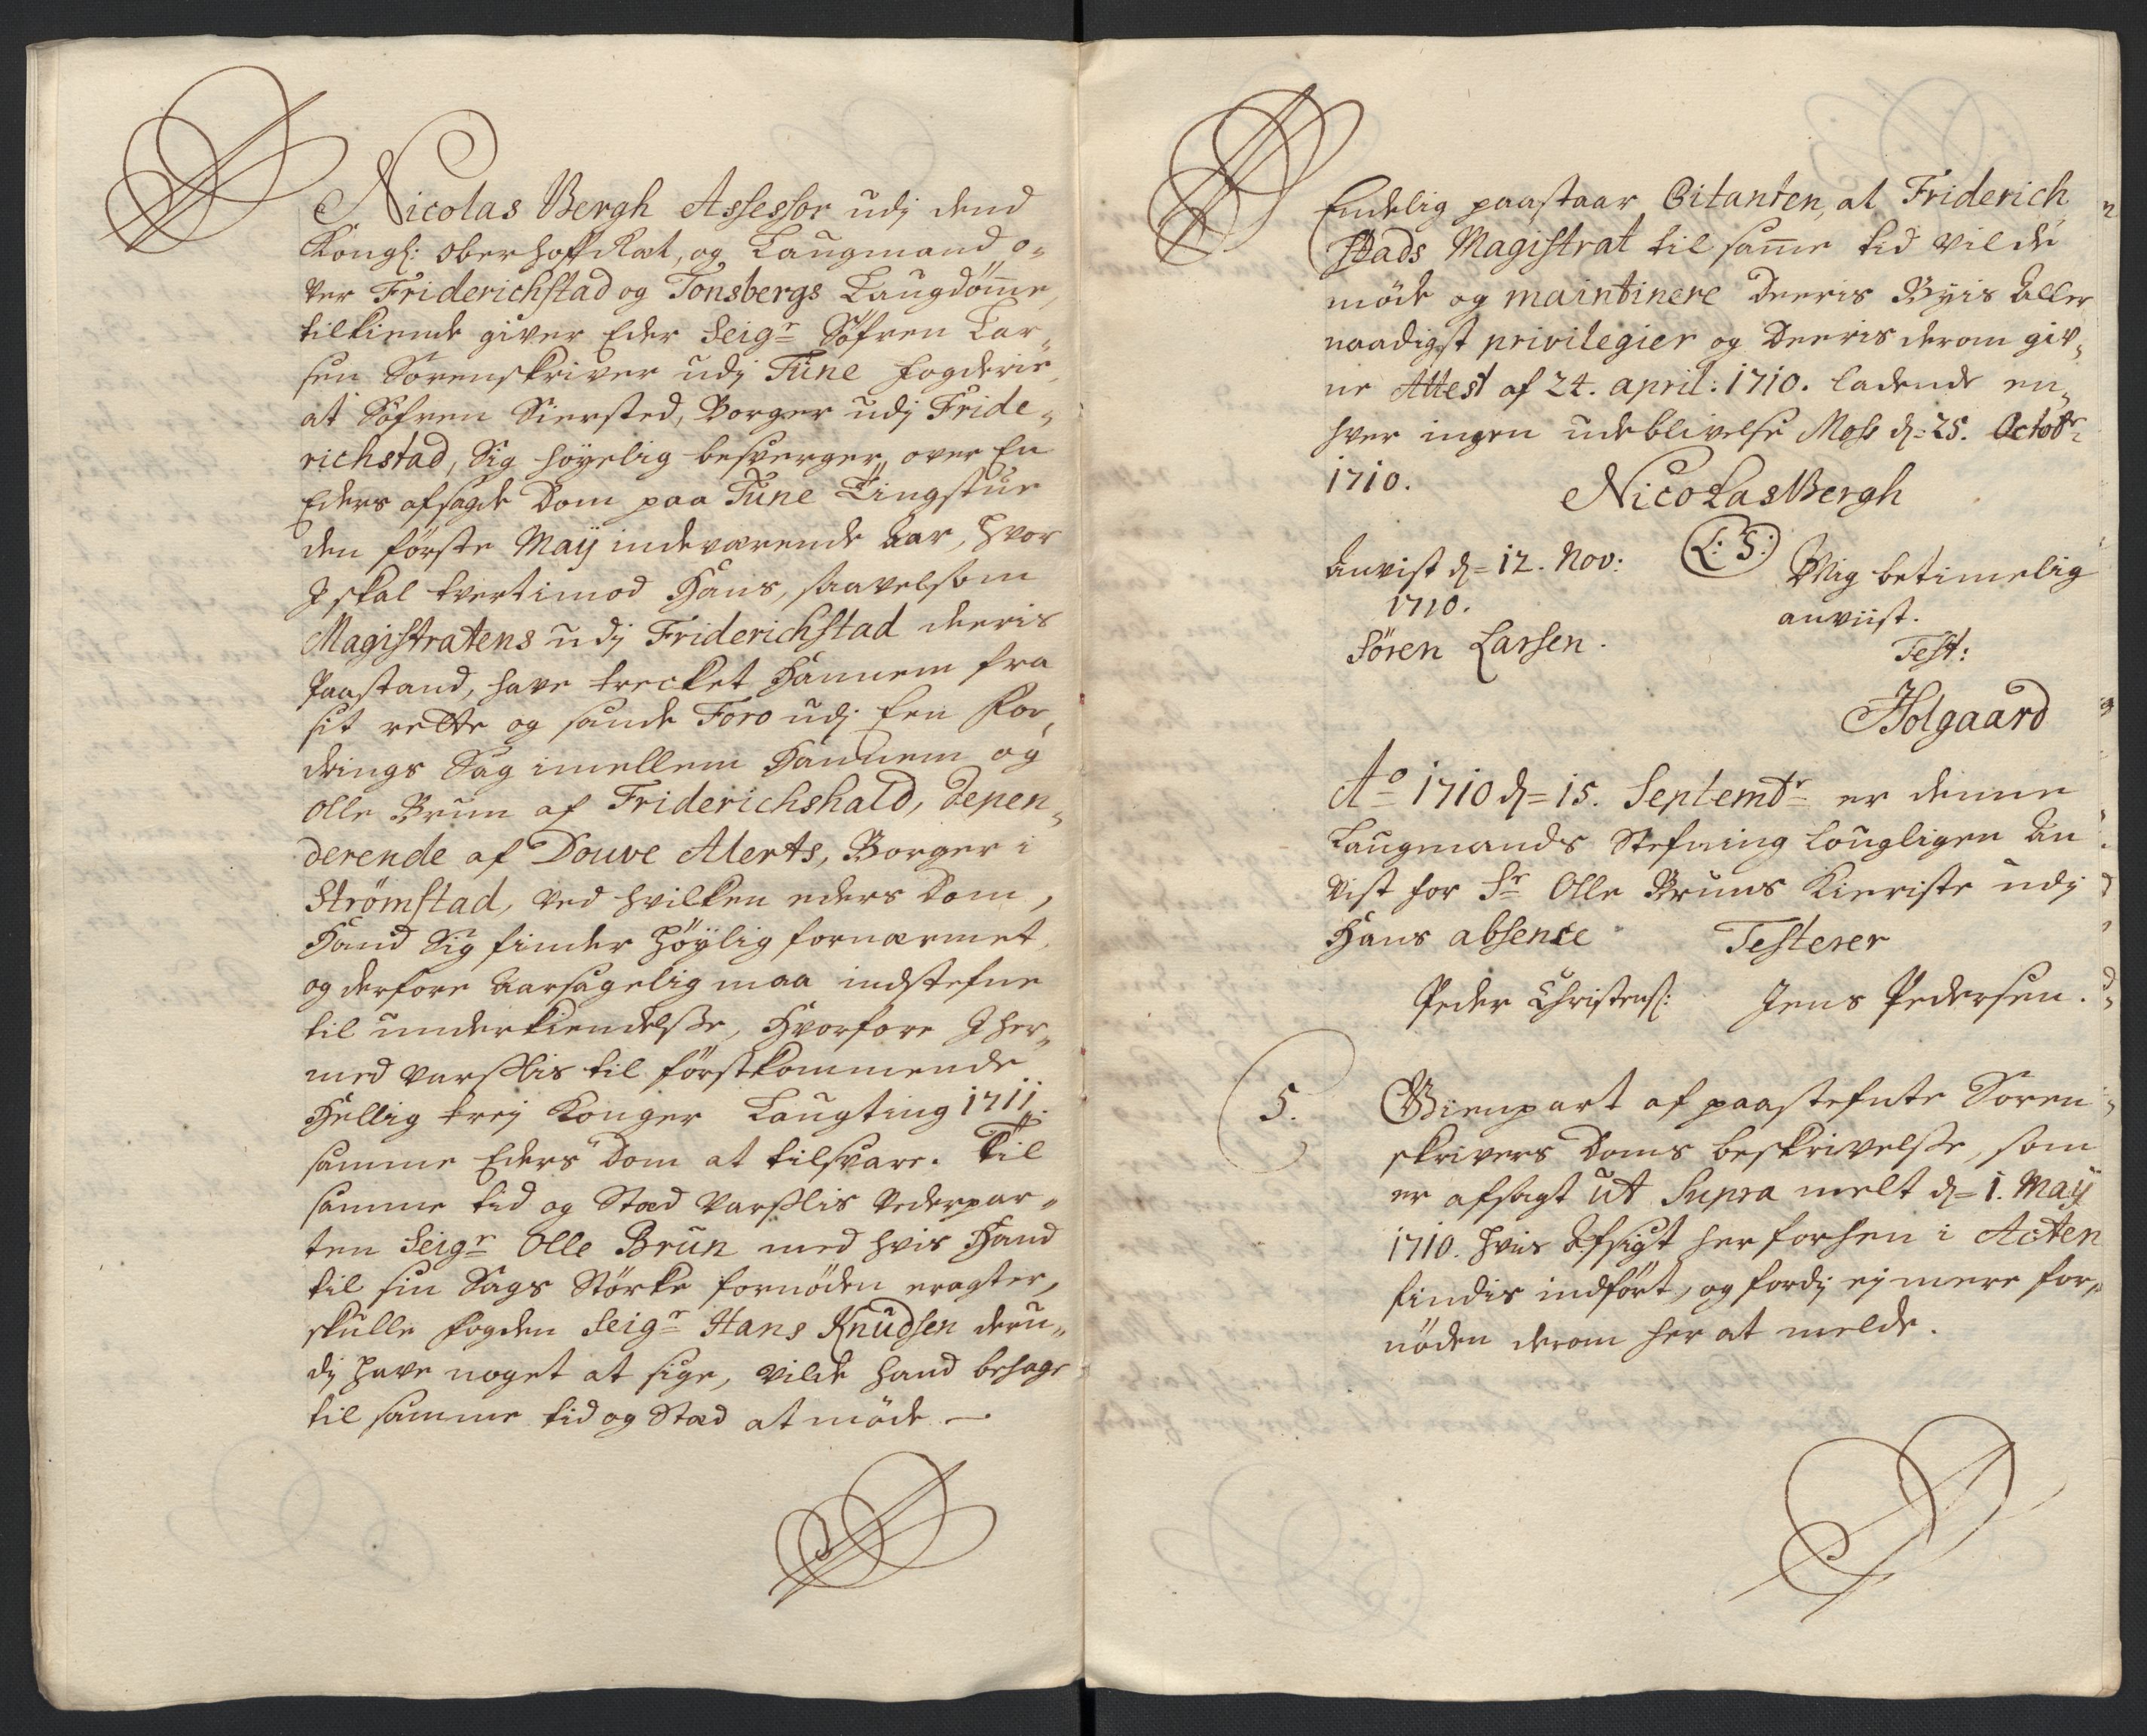 Nicolas Bergh Assessor udj dend
Kongl: Oberhoff Ret, og Laugmand o-
ver Friderichstad og Tonsbergs Laugdømme,
tilkiende giver Eder Seigr Söfren Lar-
sen Sorenskriver udj Tüne fogderie,
at Söfren Siersted, Borger udj Fride-
richstad, Sig höyelig besverger over En
Eders afsagde Dom paa Tüne Tingstue
den förste Maij indeværende Aar, hvor
I skal tvertimod Hans, saavelsom
Magistratens udj Friderichstad deeris
Paastand, have trecket Hannem fra
sit rette og sande Foro udj Een For-
drings Sag imellem Hannem og
Olle Brun af Friderichshald, depen-
derende af Douve Alerts, Borger i
Strömstad, ved hvilken eders Dom,
Hand Sig finder Höylig fornærmet,
og derfore Aarsagelig maa indstefne
til underkiendelsse, Hvorfore I her-
med varsslis til förstkommende
Hellig trej Konger Laugting 1711.
samme Eders Dom at tilsvare. Til
samme tid og Stæd varsslis vederpar-
ten Seigr Olle Brün med hvis Hand
til sin Sags Störke fornöden eragter,
skulle fogden Seigr Hans Knudsen deru-
dj have noget at sige, vilde hand behage
til samme tid og Stæd at möde. —
Endelig paastaar Citanten, at Friderich
stads Magistrat til samme tid vilde
möde og maintinere Deeris Byis Aller
naadigst privilegier og Deeris derom giv-
ne Attest af 24. april: 1710. ladende en-
hver ingen udeblivelse Moss d= 25. Octobr:
1710.
Nicolas Bergh
L: S:
Anvist d= 12. Nov:
1710.
Sören Larsen.
Mig betimelig
anviist.
Test:
Holgaard
Ao 1710 d= 15. Septembr er denne
Laugmands Stefning lougligen An
vist for Sr Olle Bruns Kieriste udj
Hans absence
Testerer
Peder Christens:
Jens Pedersen.
5.
Gienpart af paastefnte Soren-
skrivers Doms beskrivelsse, som
er afsagt ut Supra melt d= 1. Maij
1710. hvis Afsigt her forhen i Acten
findis indfört, og fordj ej mere for-
nöden derom her at melde.